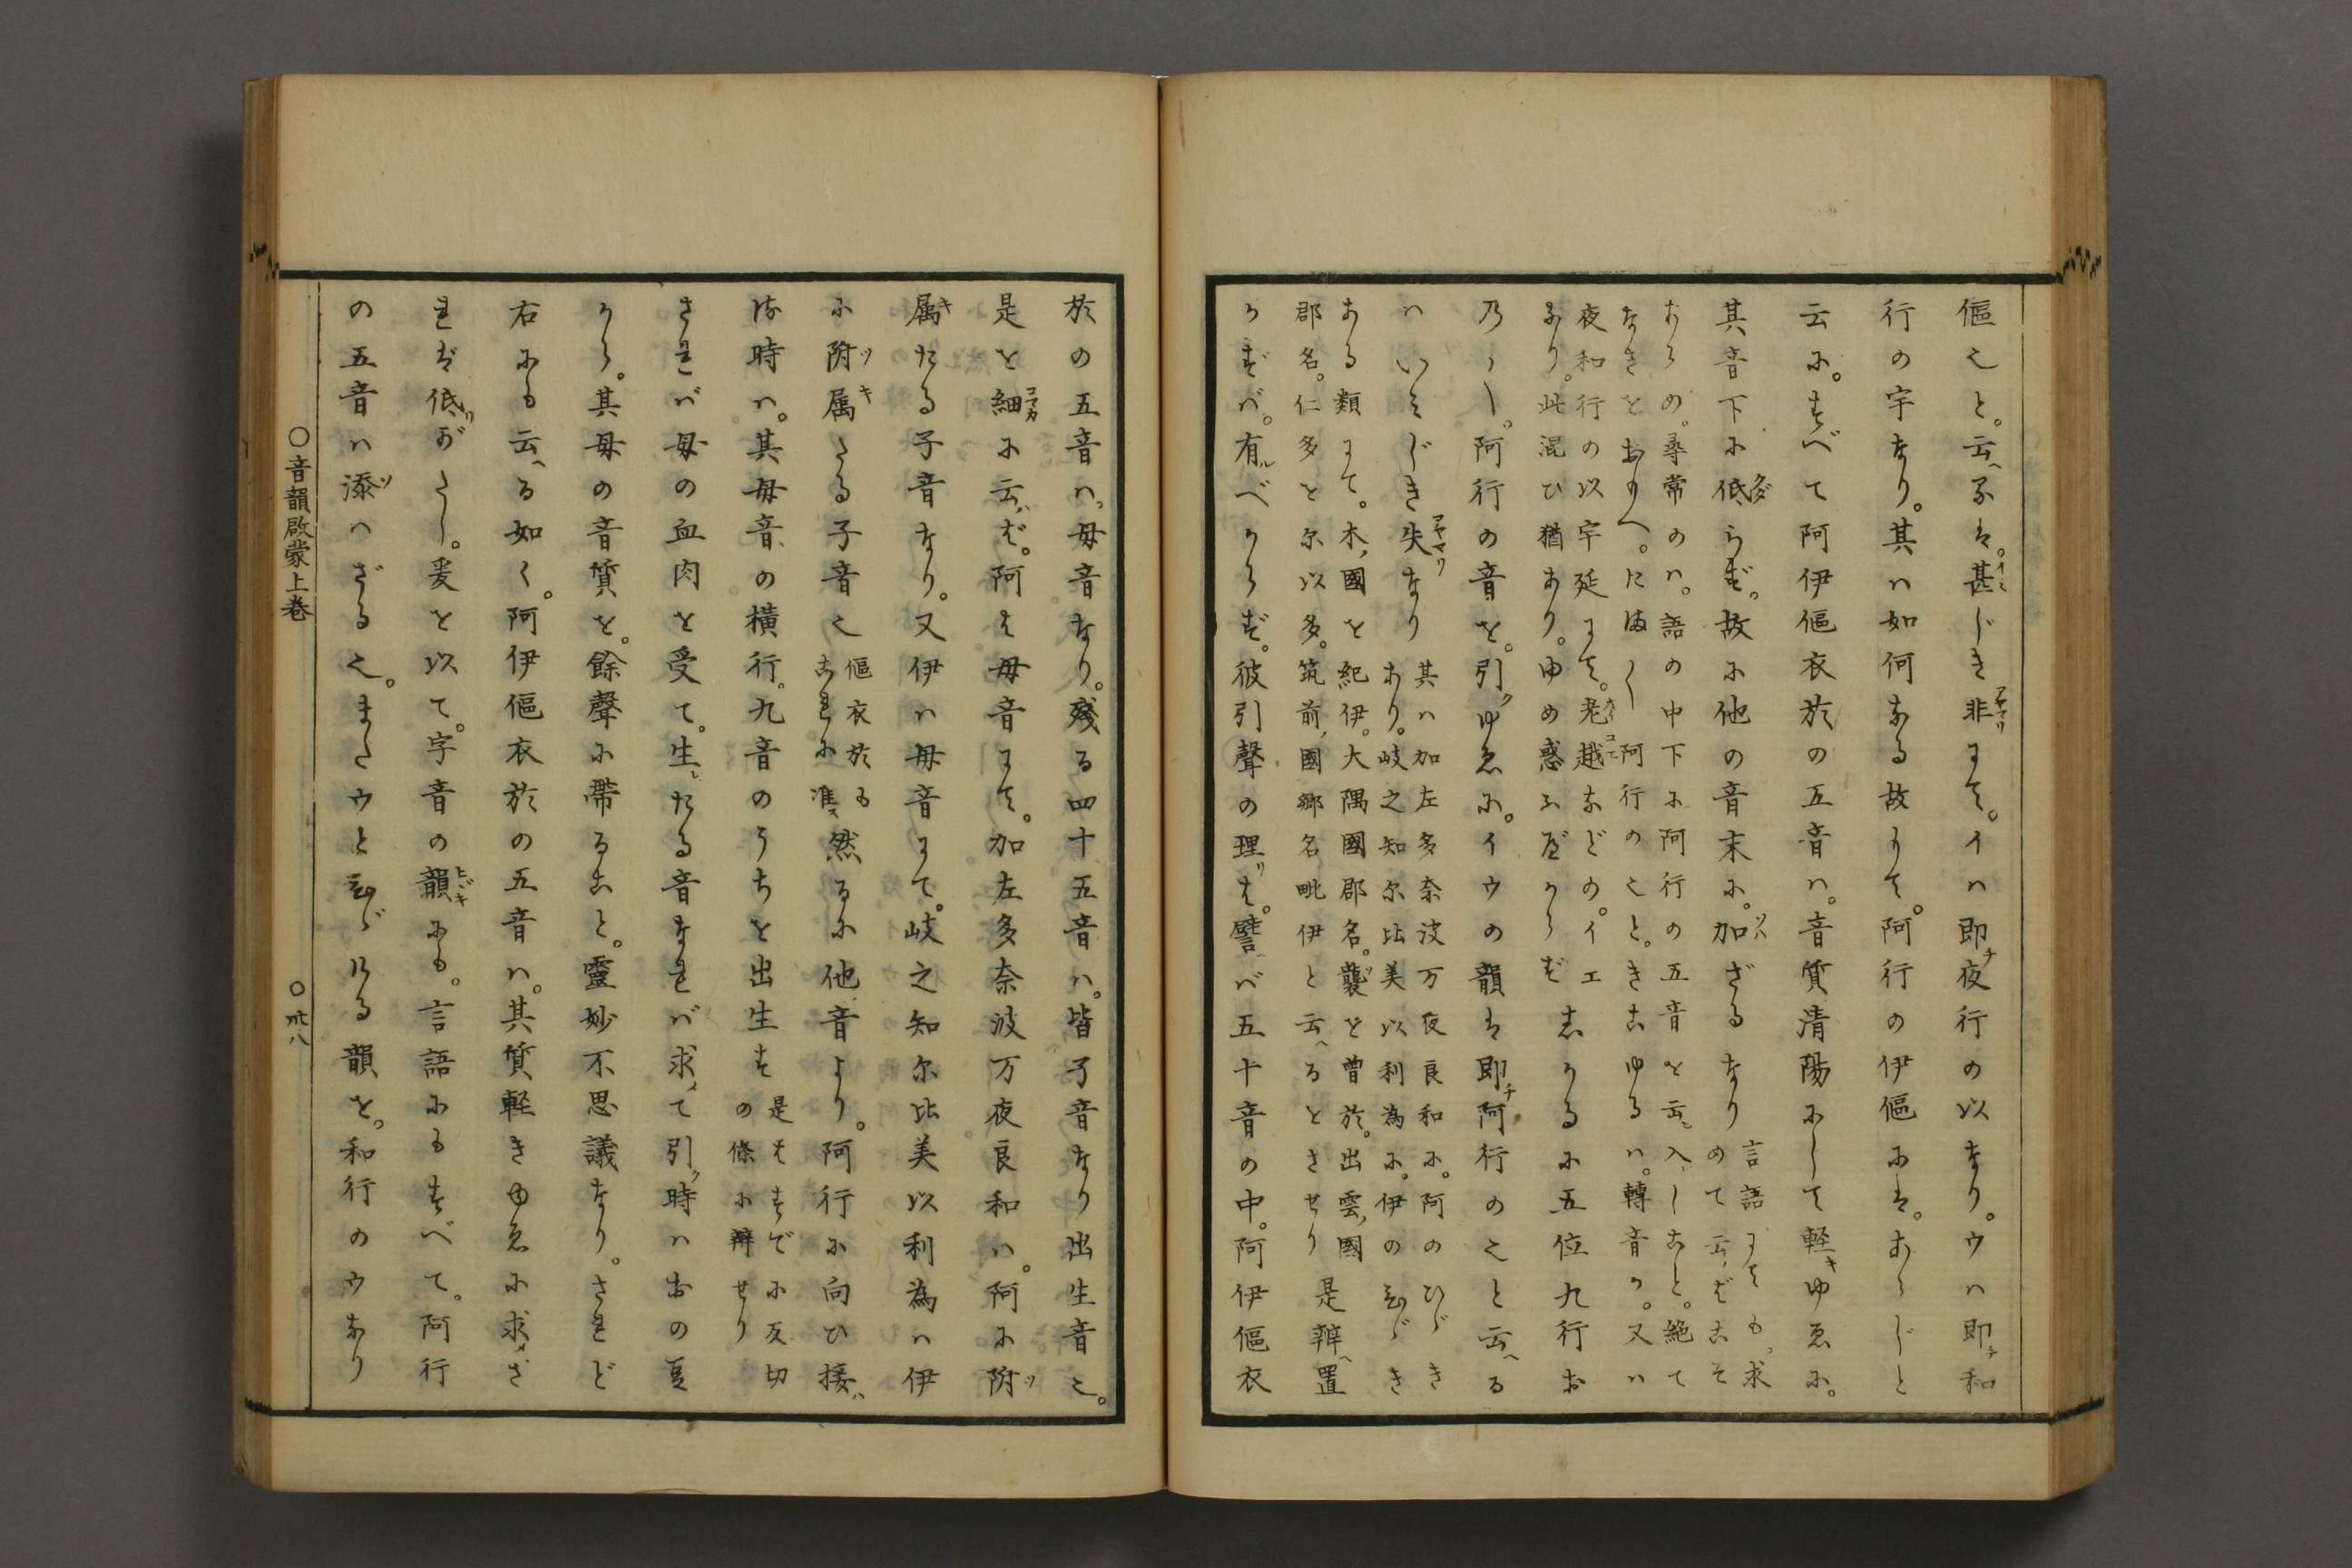 傴之と。云へるは。甚じき非にて。イハ即夜行の以なり。ウハ即和
行の宇なり。其ハ如何なる故にて。阿行の伊傴にハ。あらじと
云に。すべて阿伊傴衣於の五音ハ。音質清陽にして軽きゆゑに。
其音下に低らず。故に他の音末に。加ざるなり
言語にても。求
めて云ばこそ
あらめ。尋常のハ。語の中下に阿行の五音を云入しこと。絶て
なきをおもへ。たまく阿行のこと。きこゆるハ。轉音か。又ハ
夜和行の以宇延にて。老越などの。イエ
なり。此混ひ猶あり。ゆめ惑ふべからず
志かるに五位九行お
乃〱。阿行の音を。引ゆゑに。イウの韻は即阿行のこと云へる
ハいみじき失なり
其ハ加左多奈波万夜良和に。阿のひゞき
あり。岐之知尓比美以利為に。伊のひゞき
ある類にて。木國を紀伊。大隅國郡名。襲を曽於。出雲國
郡名。仁多を尓以多。筑前國郷名毗伊と云へるときせり
是辨へ置
かずバ。有べからず。彼引聲の理は。譬バ五十音の中。阿伊傴衣
於の五音ハ。母音なり。残る四十五音ハ。皆子音なり出生音之。
是を細に云ば。阿は母音にて。加左多奈波万夜良和ハ。阿に附
属たる子音なり。又伊ハ母音にて。岐之知尓比美以利為ハ伊
に附属たる子音之
傴衣於も
これに準
然るに他音より。阿行に向ひ接
時ハ。其母音の横行。九音のうちを出生す
是はすでに反切
の條に辨せり
されバ母の血肉を受て。生たる音なれバ求て引時ハおの豆
から。其母の音質を。餘聲に帯ること。靈妙不思議なり。されど
右にも云へる如く。阿伊傴衣於の五音ハ。其質軽きゆゑに求ざ
れば低がたし。爰を以て。字音の韻にも。言語にもすべて。阿行
の五音ハ添ハざる之。またウとひゞける韻を。和行のウなり
○音韻啟蒙上巻
○卅八